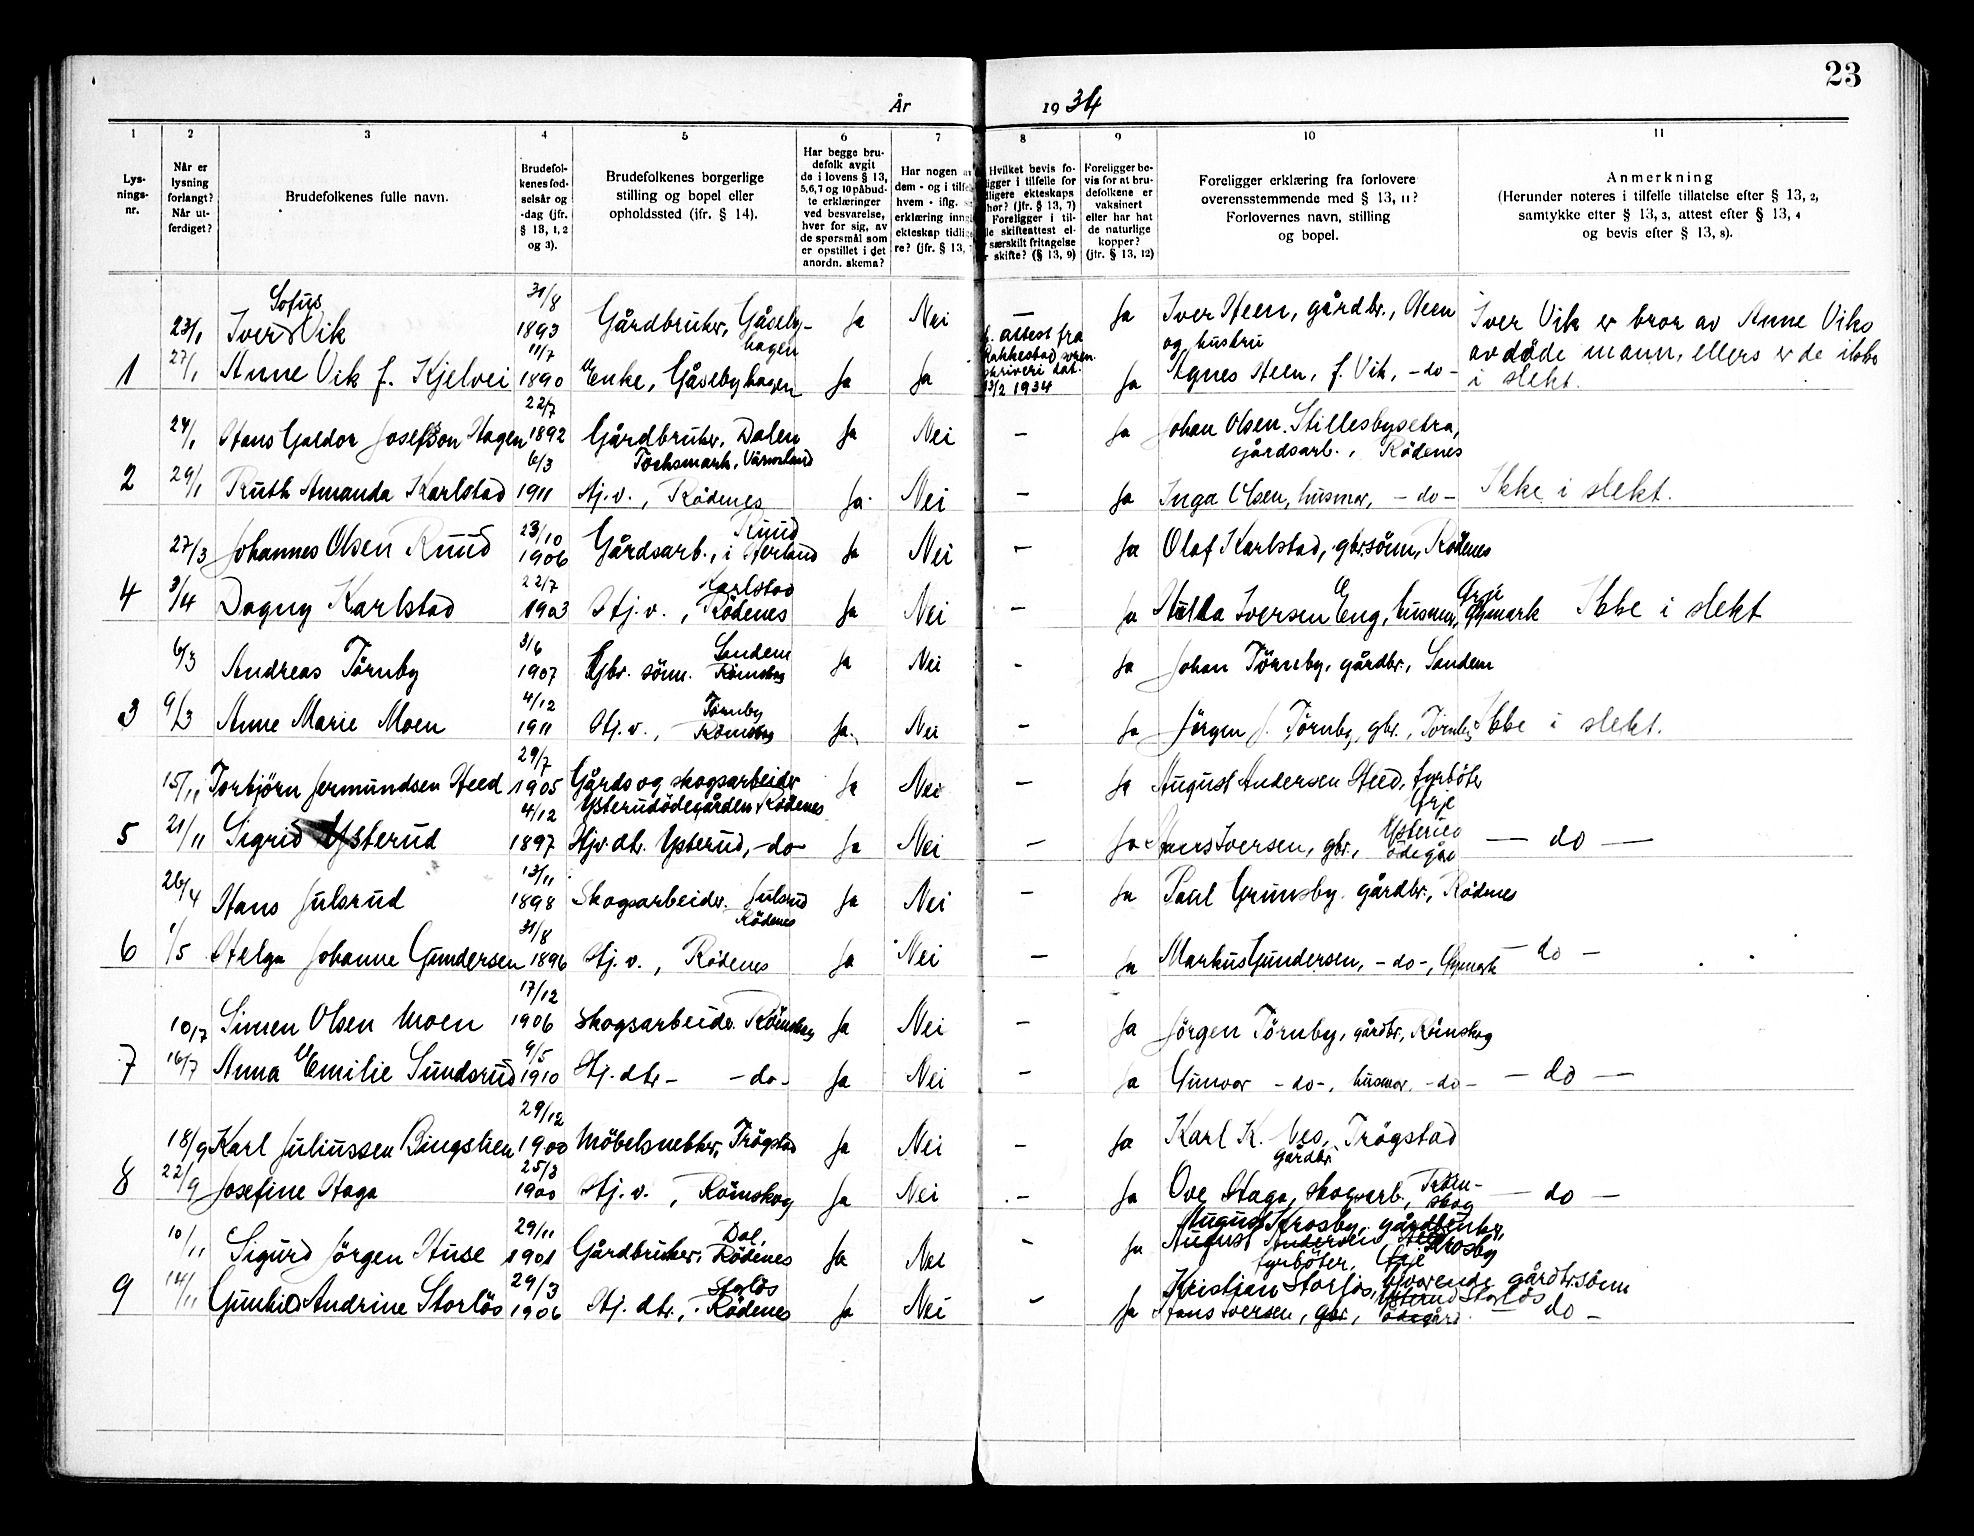 23
År 1934
1 2 3 4 5 6 7 8 9 10 11
Lys-
nings-
nr.
Når er
lysning
forlangt?
Når ut-
ferdiget?
Brudefolkenes fulle navn.
Brudefol-
kenes fød-
selsår og
-dag (jfr.
§ 13, 1, 2
og 3).
Brudefolkenes borgerlige
stilling og bopel eller
opholdssted (ifr. § 14).
Har begge bru-
defolk avgit
de i lovens § 13,
5,6,7 og 10 påbud-
te erklæringer
ved besvarelse,
hver for sig, av
de spørsmål som
er opstillet i det
anordn. skema?
Har nogen av
dem - og i tilfe
hvem - iflg.
erklæring inng
ekteskap tidlig
re? (jfr. § 13,
Hvilket bevis fo-
ligger i tilfelle for
dligere ekteskaps
hør? (jfr. § 13, 7)
Foreligger i til-
le skifteattest el-
særskilt fritagelse
skifte? (§ 13, 9)
Foreligger be-
vis for at bru-
defolkene er
vaksinert
eller har hat
de naturlige
kopper?
(jfr. § 13, 12)
Foreligger erklæring fra forlovere
overensstemmende med § 13, 11?
Forlovernes navn, stilling
og bopel.
Anmerkning
(Herunder noteres i tilfelle tillatelse efter § 13, 2,
samtykke efter § 13, 3, attest efter § 13, 4
og bevis efter § 13, 8).
23/1 Iver Sofus Vik 31/8 1893 Gårdbruker, Gåseby-hagen Ja Nei — Ja Iver Steen, gårdbr., Steen og hustru Iver Vik er bror av Anne Viks
1 27/1 Anne Vik f. Kjelvei 11/7 1890 Enke, Gåsebyhagen Ja Ja attest fra Rakkestad soren-skriveri dat. 13/2 1934 Ja Agnes Steen, f. Vik, -do- avdøde mann, ellers er de ikke i slekt.
24/1 Hans Galdor Josefson Hagen 22/7 1892 Gårdbruker, Dalen Tocksmark, Värmland Ja Nei - Ja Johan Olsen. Stillesbysetra, gårdsarb., Rödenes
2 29/1 Ruth Amanda Karlstad 6/3 1911 Hj.v., Rödenes Ja. Nei - Ja Inga Olsen, husmor, -do- Ikke i slekt.
27/3 Johannes Olsen Ruud 23/10 1906 Gårdsarb., Ruud i Herland Ja Nei - Ja Olaf Karlstad, gbr.sönn, Rödenes
4 3/4 Dagny Karlstad 22/7 1903 Hj.v., Karlstad Rödenes Ja Nei - Ja Iversen Eng, husmor, Ørje Ikke i slekt
6/3 Andreas Törnby 3/6 1907 Gbr. sönn. Sandem Römskog Ja Nei - Ja Johan Törnby, gårdbr., Sandem
3 9/3 Anne Marie Moen 4/12 1911 Hj.v., Törnby Römskog Ja. Nei - Ja Jörgen J. Törnby, gbr., Törnby Ikke i slekt.
15/11 Torbjörn Jermundsen Heed 29/7 1905 Gårds og skogsarbeider Ysterudödegården, Rödenes Ja Nei - Ja August Andersen Heed, fyrböter Ørje
5 21/11 Sigrid Ysterud 4/12 1897 Hjv. dtr. Ysterud, -do- Ja Nei - Ja Hans Iversen, gbr., Ysterud ödegård — do —
26/4 Hans Julsrud 13/11 1898 Skogsarbeider. Julsrud Rödenes Ja Nei - Ja Paul Grimsby. gårdbr., Rödenes
6 1/5 Helga Johanne Gundersen 31/8 1896 Hj.v., Rödenes Ja Nei - Ja Markus Gundersen, -do-, Øymark — do —
10/7 Simen Olsen Moen 17/12 1906 Skogsarbeider. Römskog Ja Nei - Ja Jörgen Törnby, gårdbr., Römskog
7 16/7 Anna Emilie Sundsrud 9/5 1910 Hj. dtr- -do- Ja Nei - Ja Gunvor -do-, husmor, -do- — do —
18/9 Karl Juliussen Bingslien 29/12 1900 Möbelsnekker, Trögstad Ja Nei - Ja Karl K. Nes, Trögstad gårdbr.
8 22/9 Josefine Haga 25/3 1900 Hj.v., Römskog Ja Nei - Ja Ove Haga, skogsarb., Röm-skog — do —
10/11 Sigurd Jörgen Huse 29/11 1901 Gårdbruker. Dal, Rödenes Ja Nei - Ja August Krosby, gårdbruker, Krosby August Andersen Heed fyrböter, Ørje
9 14/11 Gunhild Andrine Storlös 29/3 1906 Hj. dtr., Storlös Rödenes Ja Nei - Ja Kristian Storlös, hj.værende gårdbr.sönn Storlös Hans Iversen, gbr, Ysterud ödegård — do —